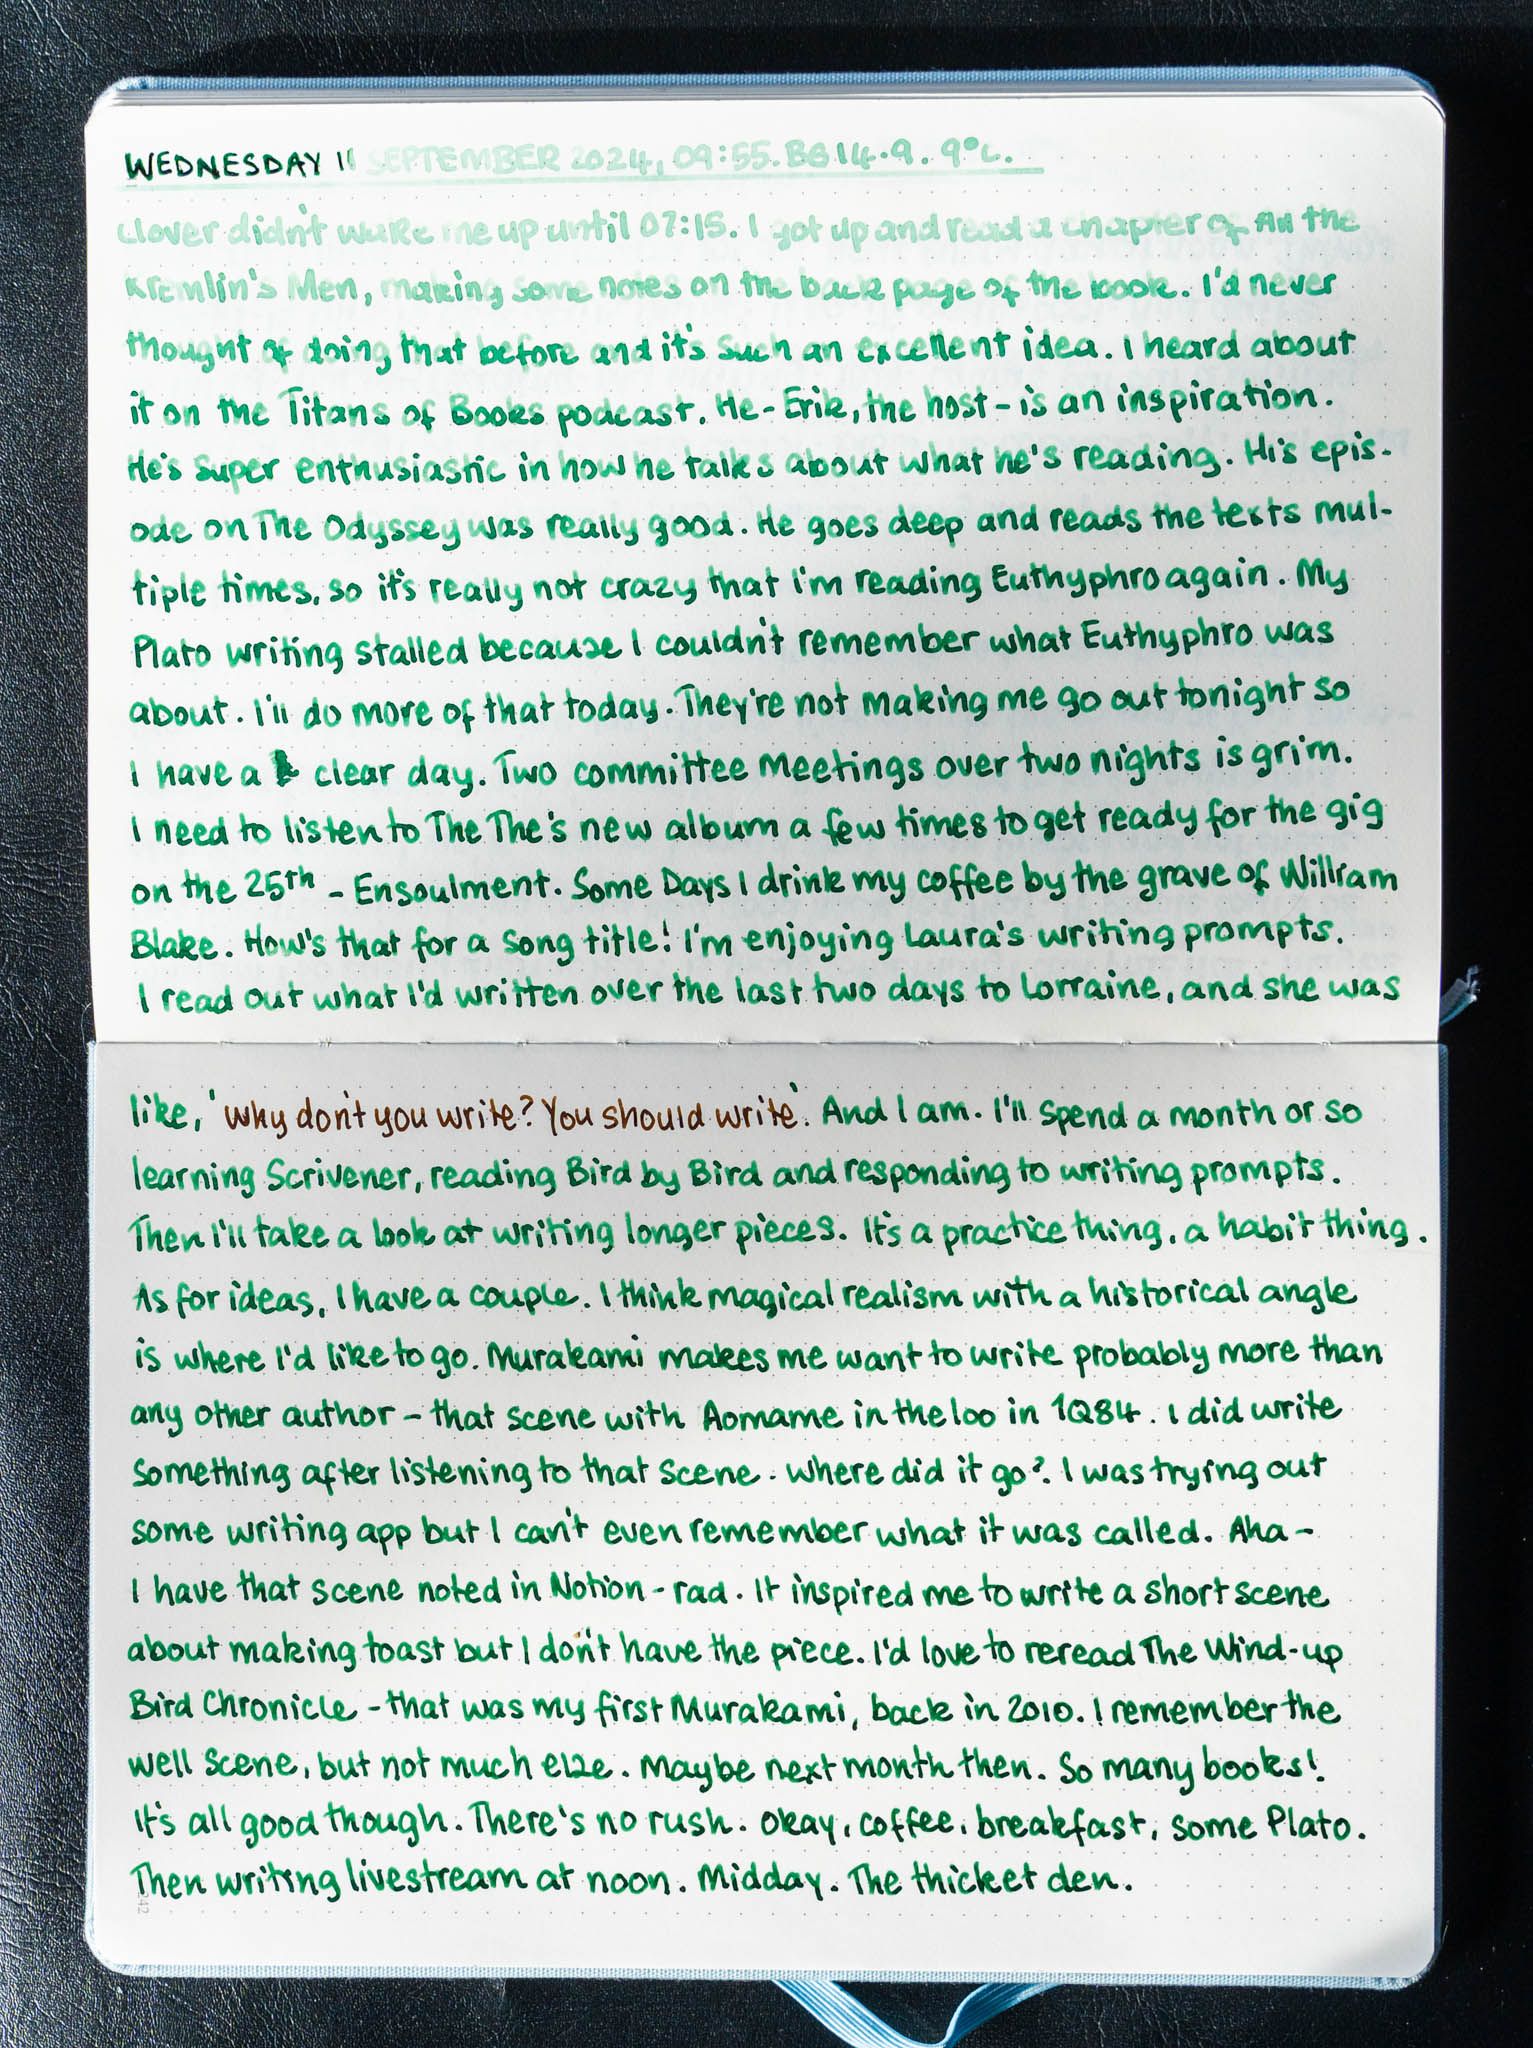 WEDNESDAY 11 SEPTEMBER 2024, 09:55. BG 14.9. 9°C.
Clover didn't wake me up until 07:15. I got up and read a chapter of All the
Kremlin's Men, making some notes on the back page of the book. I'd never
thought of doing that before and it's such an excellent idea. I heard about
it on the Titans of Books podcast. He - Erik, the host - is an inspiration.
He's super enthusiastic in how he talks about what he's reading. His epis-
ode on The Odyssey was really good. He goes deep and reads the texts mul-
tiple times, so it's really not crazy that I'm reading Euthyphro again. My
Plato writing stalled because I couldn't remember what Euthyphro was
about. I'll do more of that today. They're not making me go out tonight so
I have a clear day. Two committee meetings over two nights is grim.
I need to listen to The The's new album a few times to get ready for the gig
on the 25th - Ensoulment. Some Days I drink my coffee by the grave of William
Blake. How's that for a song title! I'm enjoying Laura's writing prompts.
I read out what I'd written over the last two days to Lorraine, and she was
like, 'Why don't you write? You should write'. And I am. I'll spend a month or so
learning Scrivener, reading Bird by Bird and responding to writing prompts.
Then I'll take a look at writing longer pieces. It's a practice thing, a habit thing.
As for ideas, I have a couple. I think magical realism with a historical angle
is where I'd like to go. Murakami makes me want to write probably more than
any other author - that scene with Aomame in the loo in 1Q84. I did write
something after listening to that scene. Where did it go? I was trying out
some writing app but I can't even remember what it was called. Aha -
I have that scene noted in Notion - rad. It inspired me to write a short scene
about making toast but I don't have the piece. I'd love to reread The Wind-up
Bird Chronicle - that was my first Murakami, back in 2010. I remember the
well scene, but not much else. Maybe next month then. So many books!
It's all good though. There's no rush. Okay, coffee, breakfast, some Plato.
Then writing livestream at noon. Midday. The thicket den.
242